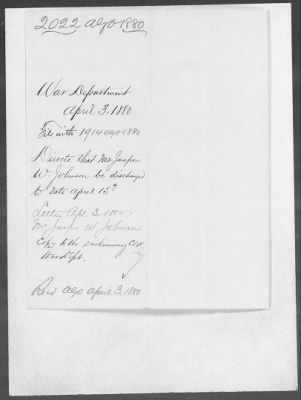 2022 AGO 1880
War Department
April 3. 1880
File with 1914 AGO 1880
Directs that Mr Jasper
W Johnson be discharged
to date April 15th
Letter Apl 3 1880 to
Mr Jasper W Johnson
to the
War Dept.
Recd AGO April 3, 1880